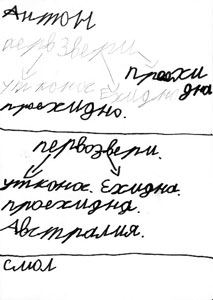 Антон
первозвери
утконос Ехидна проехидна
проехидно.
первозвери.
утконос. Ехидна.
проехидна.
Австралия.
смол